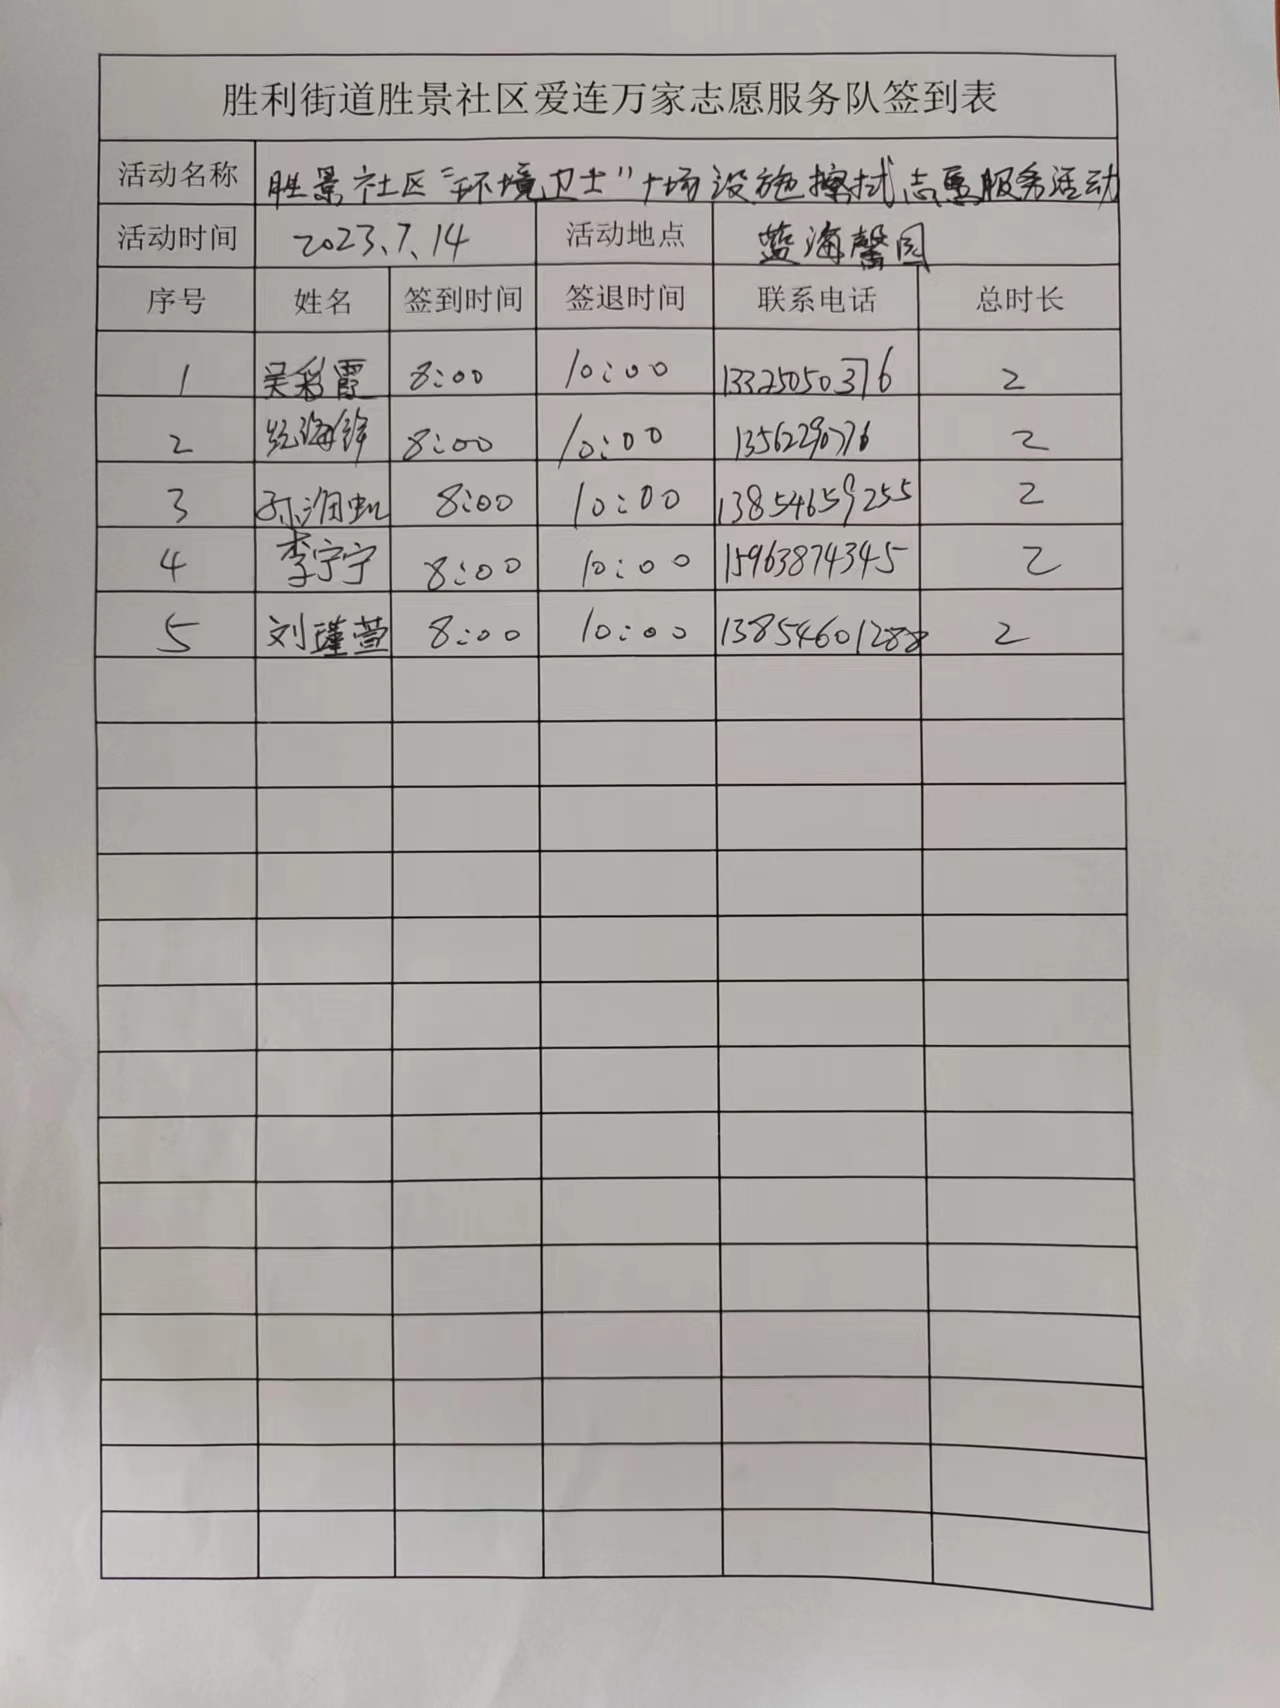 胜利街道胜景社区爱连万家志愿服务队签到表
活动名称 胜景社区“环境卫士”广场设施擦拭志愿服务活动
活动时间 2023.7.14 活动地点 蓝海馨园
序号 姓名 签到时间 签退时间 联系电话 总时长
1 吴彩霞 8:00 10:00 13325050376 2
2 8:00 10:00 2
3 8:00 10:00 13854659255 2
4 李宁宁 8:00 10:00 15963874345 2
5 刘瑾萱 8:00 10:00 13854601288 2